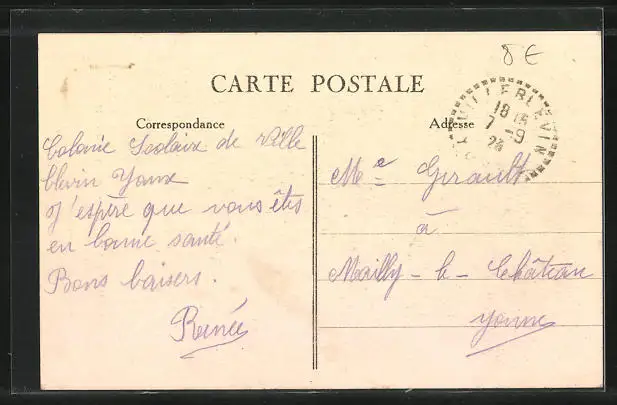 8 €
CARTE POSTALE
Correspondance
Colonie Scolaire de Ville
blevin Yonne
J'espère que vous êtes
en bonne santé.
Bons baisers.
Renée
Adresse
VILLEBLEVIN
18 15
7 - 9
Me Girault
à
Mailly-le-Château
Yonne